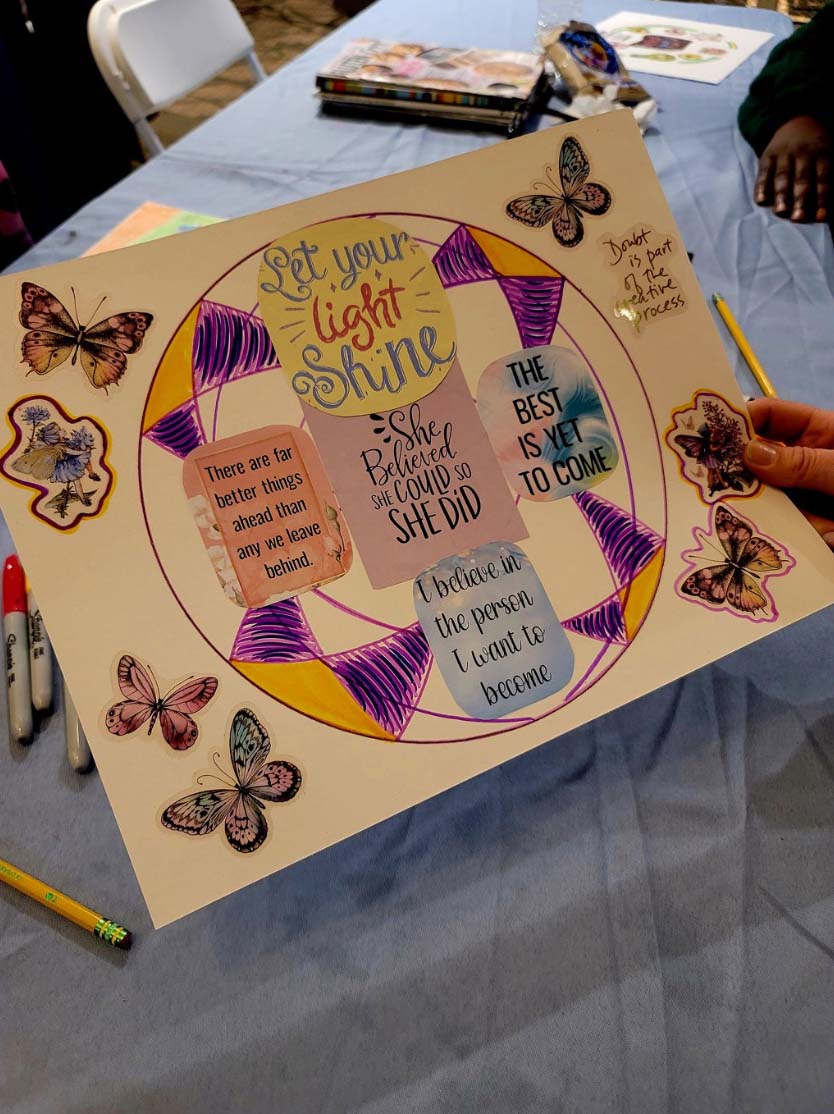 Let your
light
Shine
Doubt
is part
of the
creative
process
THE
BEST
IS YET
TO COME
She
Believed
SHE COULD SO
SHE DID
There are far
better things
ahead than
any we leave
behind.
I believe in
the person
I want to
become
Sharpie